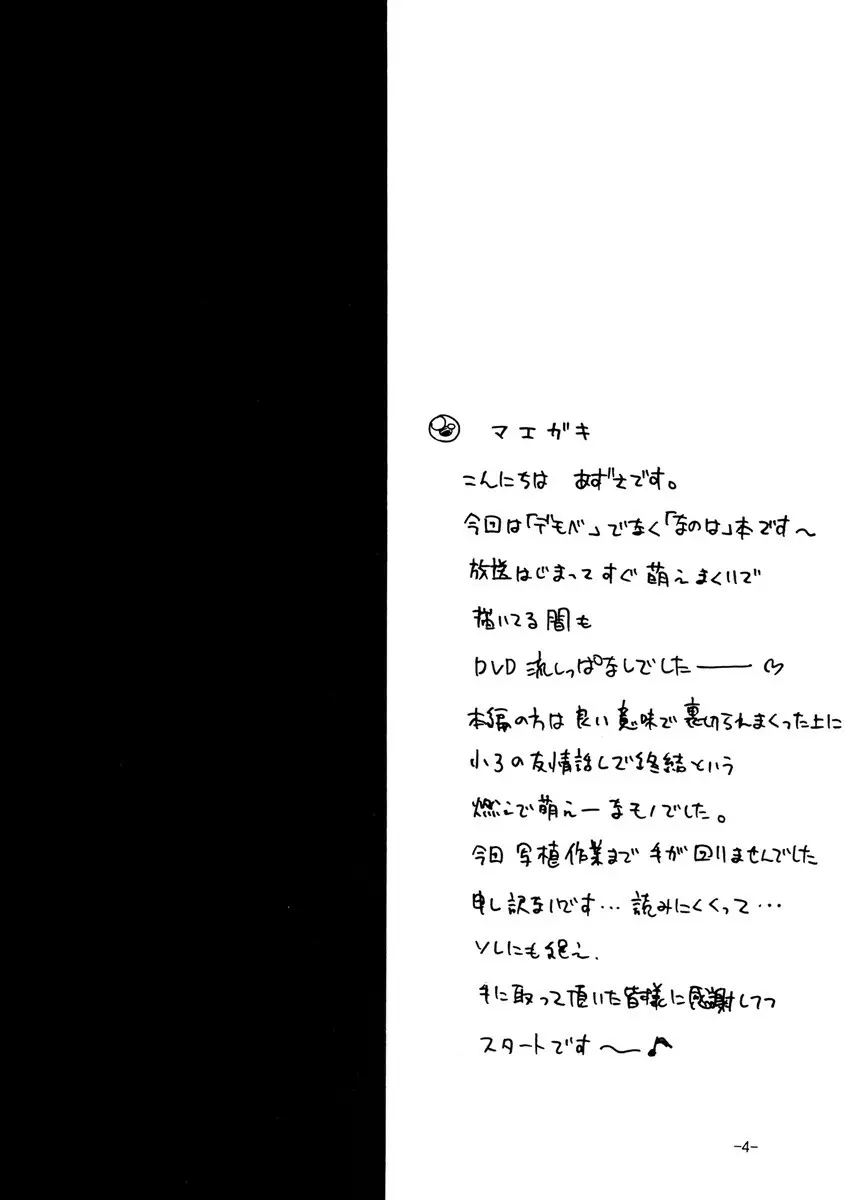 マエガキ
こんにちは あずさです。
今回は「デモベ」でなく「なのは」本です〜
放送はじまってすぐ萌えまくりで
描いてる間も
DVD 流しっぱなしでした――♡
本編の方は良い意味で裏切られまくった上に
小3の友情話しで終結という
燃えで萌えーなモノでした。
今回 写植作業まで 手が回りませんでした
申し訳ないです… 読みにくくって…
ソレにも絶え、
手に取って頂いた皆様に感謝してつ
スタートです〜♪
-4-